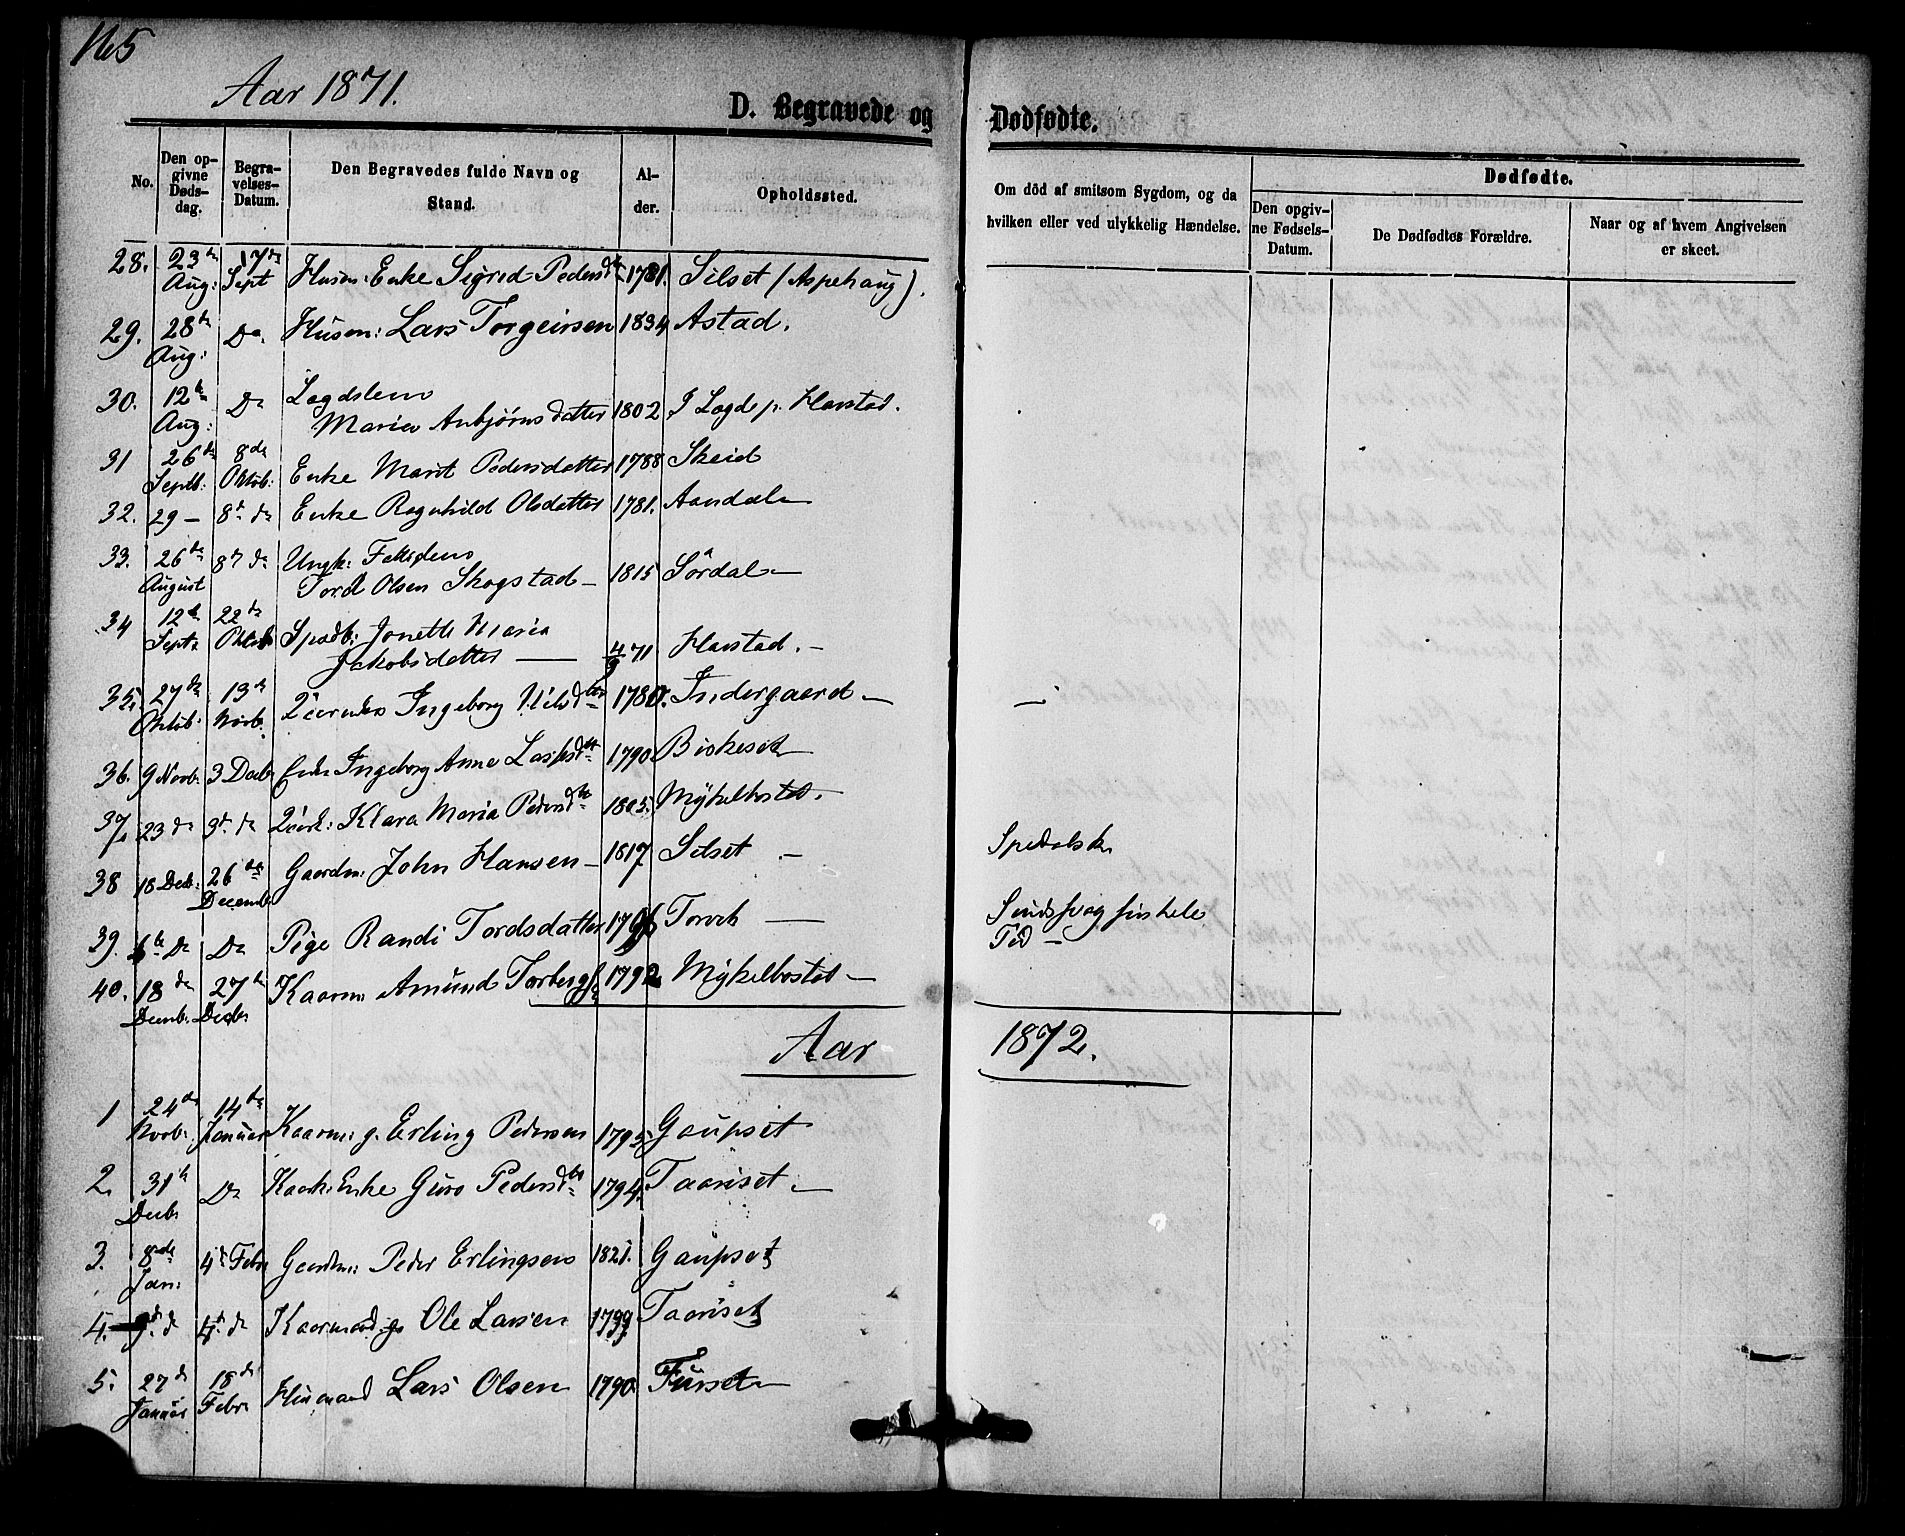 165
Aar 1871.
D. Begravede og Dødfødte.
No.
Den opgivne Dødsdag.
Begravelses-Datum.
Den Begravedes fulde Navn og Stand.
Alder.
Opholdssted.
Om död af smitsom Sygdom, og da hvilken eller ved ulykkelig Hændelse.
Dødfødte.
Den opgivne Fødsels-Datum.
De Dødfødtes Forældre.
Naar og af hvem Angivelsen er skeet.
28. 23de Aug: 17de Sept Husm: Enke Sigrid Pedersdtr 1781. Silset (Aspehaug).
29. 28de Aug: Do Husm: Lars Torgeirsen 1834 Astad.
30. 12te Aug: Do Lægdslem
Marie Anbjørnsdatter 1802 I Lægde p. Harstad.
31 26de Septb: 8de Oktob: Enke Marit Pedersdatter 1788 Skeid
32. 29 — 8de do Enke Ragnhild Olsdatter 1781. Aandal
33. 26de August 8de do Ungk: Fattiglem
Tord Olsen Skogstad — 1815 Sördal
34 12te Septr 22de Oktob Spædb: Jonette Maria
Jakobsdatter — 4/9 71 Harstad. —
35. 27de Oktob: 13de Novbr Ingeborg Nilsdtr 1780. Indergaard —
36. 9 Novb: 3 Decbr Enke Ingeborg Anne Larsdtr 1790 Biskeset
37. 23 do 3de do Klara Maria Pedersdtr 1805. Mykelbostad.
38 18 Decb: 26de Decembr Gaardm: John Hansen — 1817 Silset — Spedalsk
39. 6te Do Do Pige Randi Tordsdatter 1796 Torvik — Sindssvag sin hele
Tid —
40. 18de Decmb: 27de Decbr Kaarm Amund Torbergs. 1792 Mykelbostad —
Aar 1872.
1 24de Novb: 14de Januar Kaarm: g. Erling Pedersen 1795 Gaupset
2. 31te Decb: Do Kaark: Enke Guro Pedersdtr 1794. Taariset —
3. 8de Jan: 4de Febr Gaardm: Peder Erlingsen 1821. Gaupset
4. 9de d 4de do Kaarmand g. Ole Larsen 1799. Taariset
5. 27de Januar 18de Febr. Husmand Lars Olsen 1790 Furset